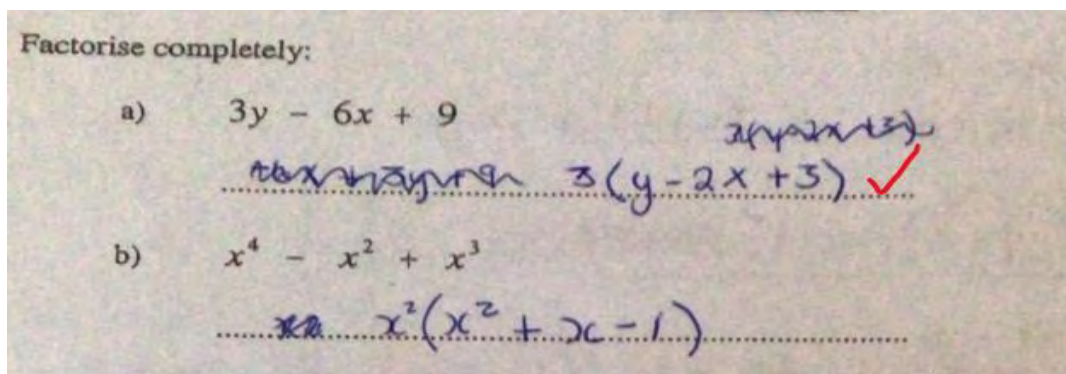 Factorise completely:
a) 3y - 6x + 9
3(y-2x+3)
b) x⁴ - x² + x³
x²(x² + x - 1)